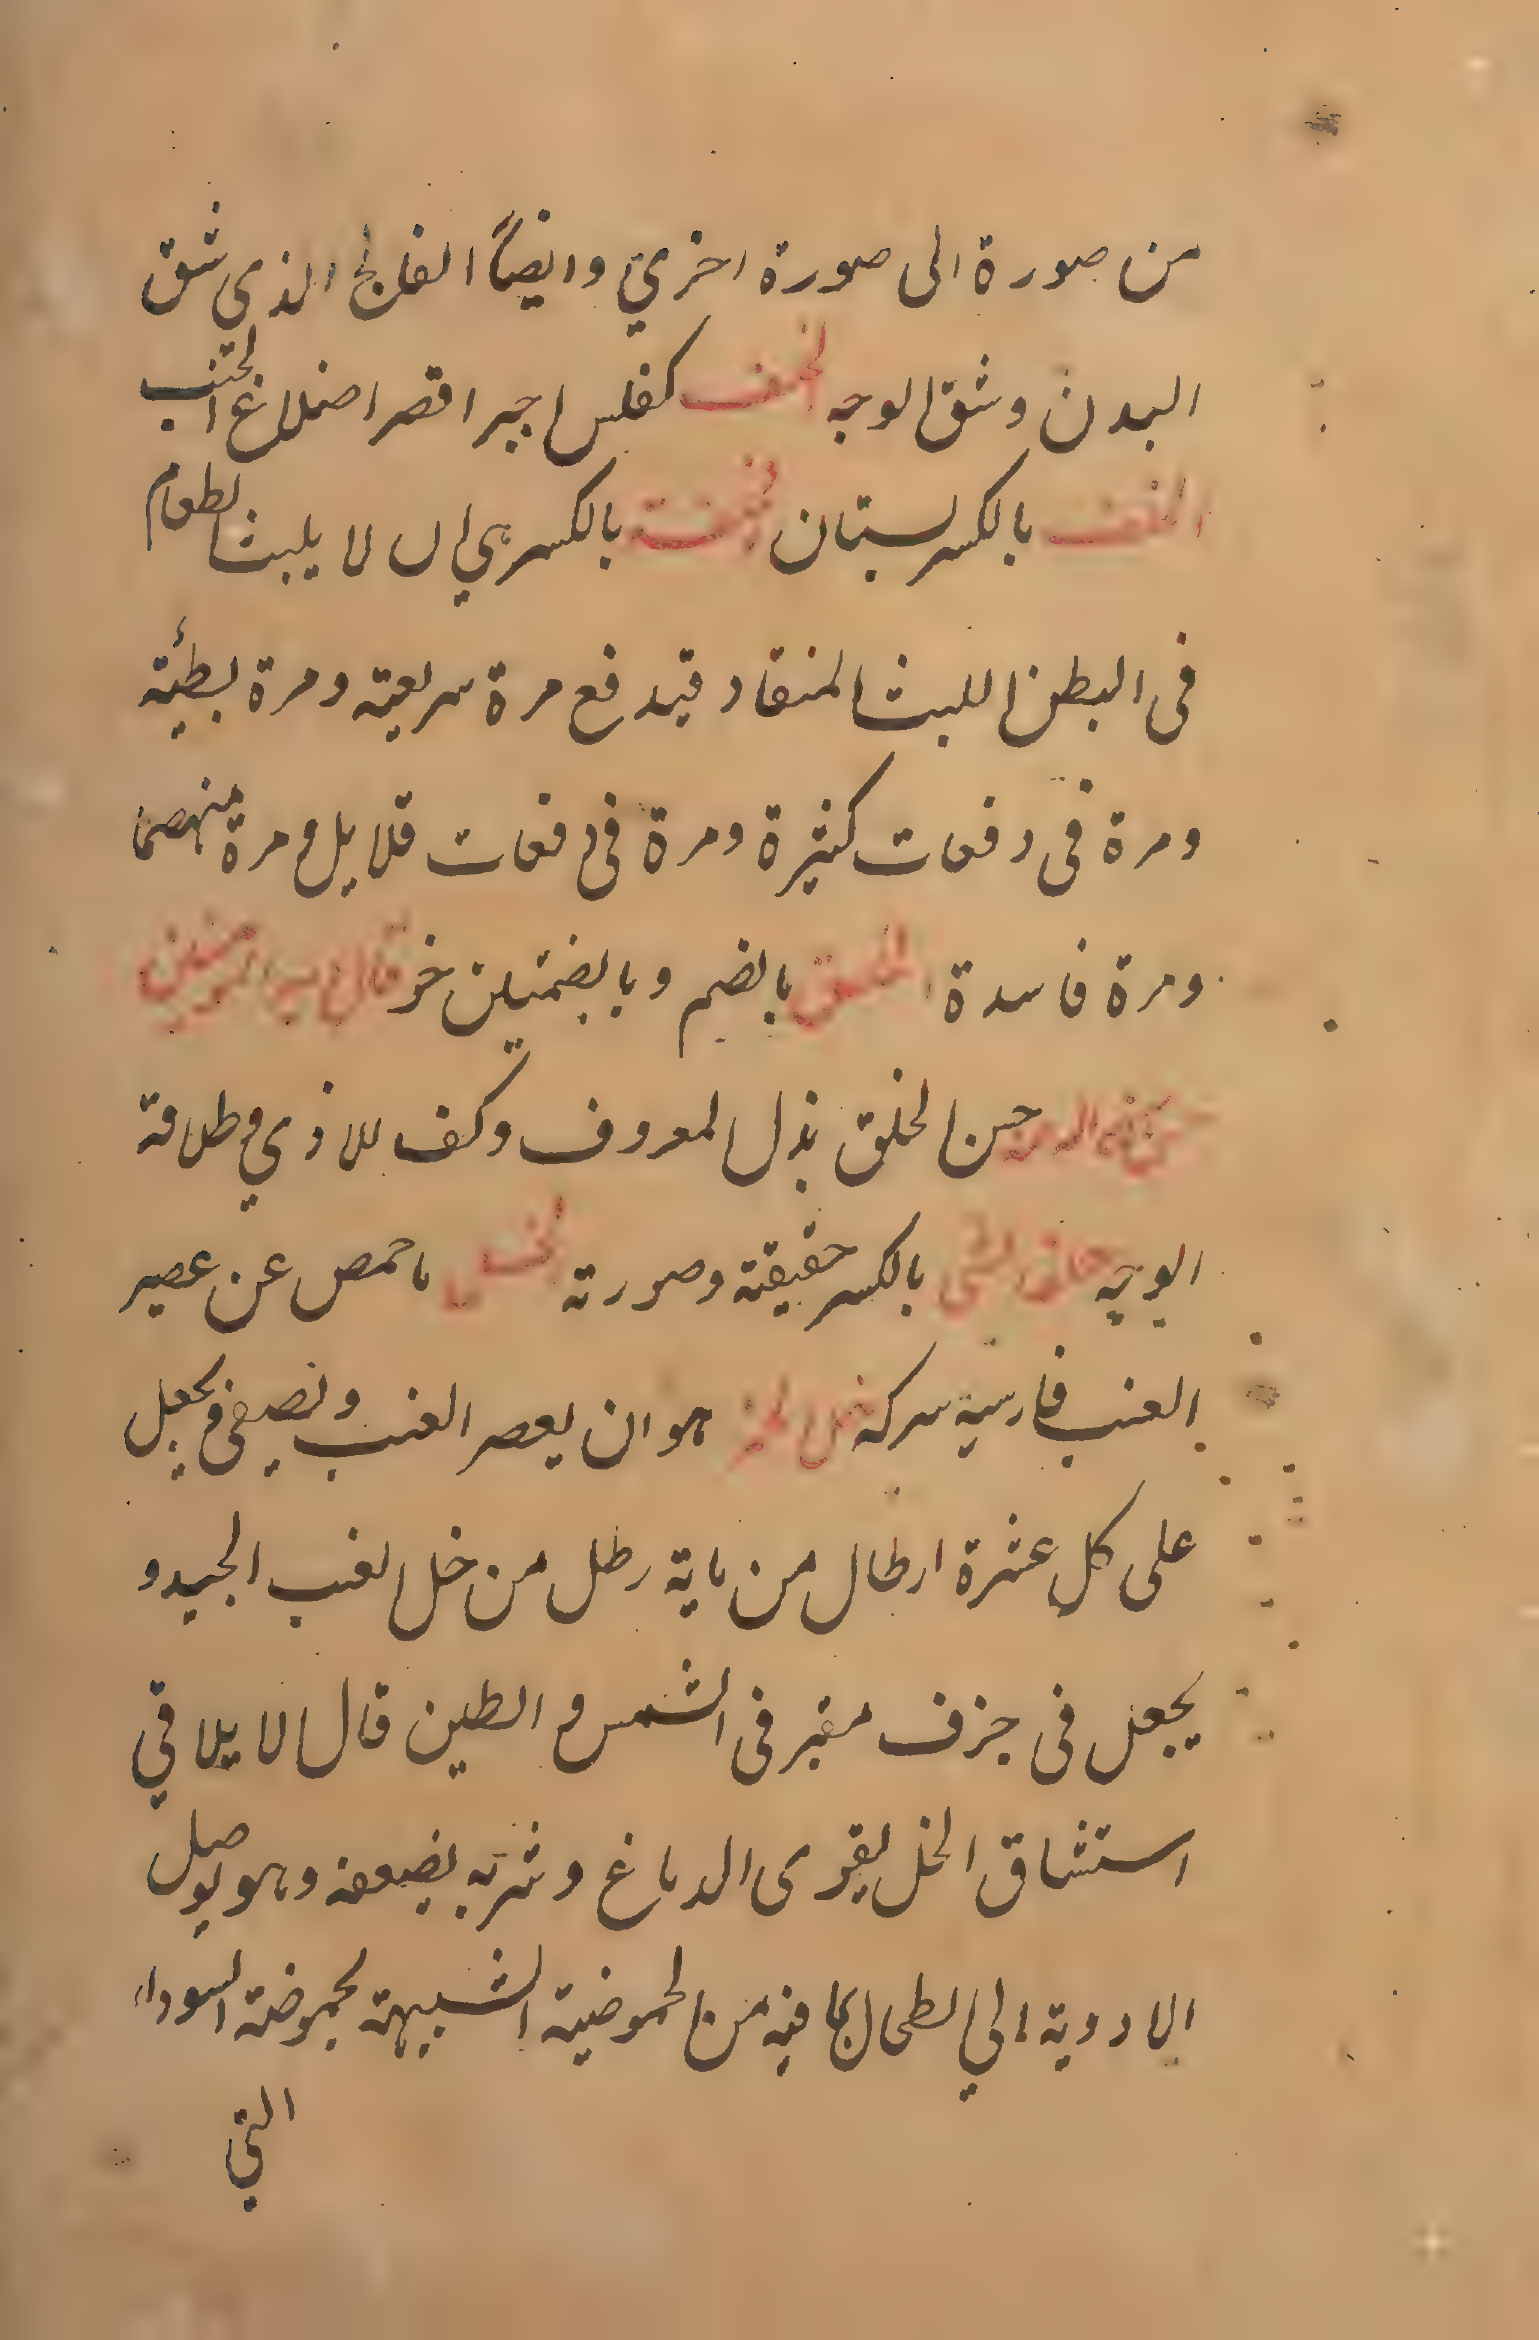 من صورة الى صورة اخري وايضاً الفالج الذي شق
البدن وشق الوجه الخلف كفلس اجير اقصر اضلاع الجنب
الخلف بالكسر لستان الخلفة بالكسر هي ان لا يلبث الطعام
فى البطن اللبث المنقاد فيدفع مرة سريعة ومرة بطيئة
ومرة فى دفعات كثيرة ومرة فى دفعات قلايل ومرة منهضما
ومرة فاسدة الخلق بالضم وبالضمتين خو قال امير المؤمنين
حسن الخلق بذل المعروف وكف للاذي وطلاقة
الوجه خلق الشى بالكسر حقيقة وصورته الخل ما حمص عن عصير
العنب فارسية سركه خل الخمر هو ان يعصر العنب ويصفى ويجعل
على كل عشرة ارطال من ماية رطل من خل العنب الجيد و
يجعل فى جزف مقير فى الشمس و الطين قال الايلاقي
استنشاق الخل يقوى الدماغ وشربه يضعفه وهو يوصل
الادوية الي الطحال بما فيه من الحموضية الشبيهة بحموضة السوداء
التي